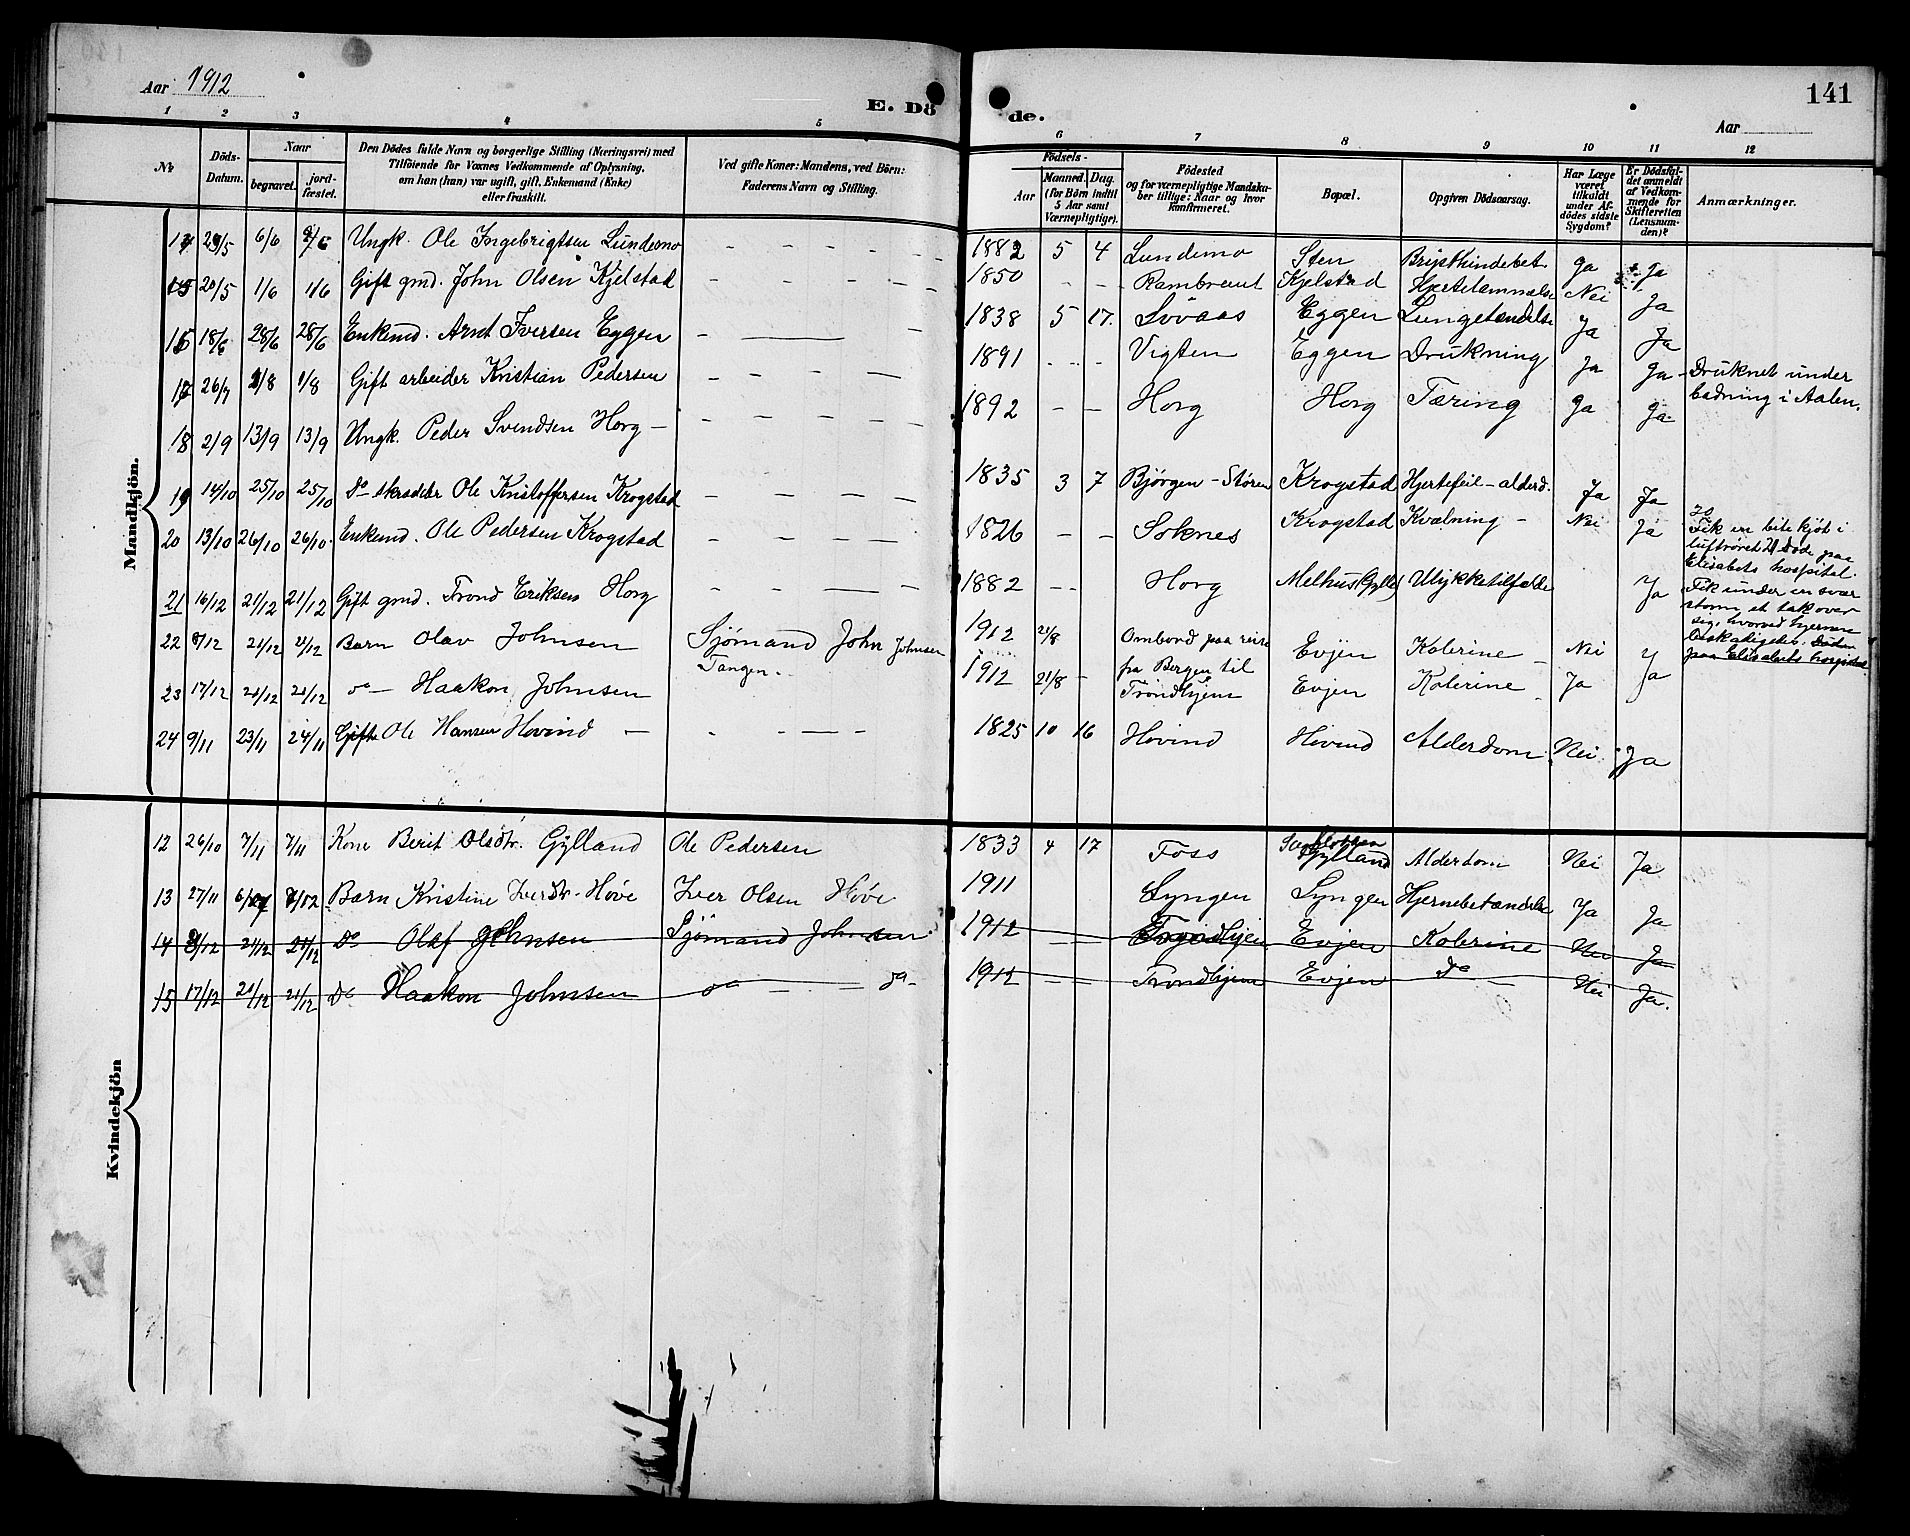 Aar 1912
E. Dö de.
141
Aar
1 2 3 4 5 6 7 8 9 10 11 12
№
Döds-Datum.
Naar
begravet.
jord-fæstet.
Den Dödes fulde Navn og borgerlige Stilling (Næringsvei) med
Tilföiende for Voxnes Vedkommende af Oplysning,
om han (hun) var ugift, gift, Enkemand (Enke)
eller fraskilt.
Ved gifte Koner: Mandens, ved Börn:
Faderens Navn og Stilling.
Födsels-
Aar
Maaned. Dag.
(for Börn indtil
5 Aar samt
Værnepligtige).
Födested
og for værnepligtige Mandska-
ber tillige: Naar og hvor
konfirmeret.
Bopæl.
Opgiven Dödsaarsag.
Har Læge
været
tilkaldt
under Af-
dödes sidste
Sygdom?
Er Dödsfal-
det anmeldt
af Vedkom-
mende for
Skifteretten
(Lensman-
den)?
Anmærkninger.
Mandkjön.
14 29/5 6/6 Ungk. Ole Ingebrigtsen Lundemo 1882 5 4 Lundemo Sten Brysthindebet. Ja Ja
15 20/5 1/6 1/6 Gift gmd. John Olsen Kjelstad 1850 Rambraut Kjelstad Hjertelammelse Nei Ja
16 18/6 28/6 28/6 Enkemd. Arnt Iversen Eggen 1838 5 17. Løvaas Eggen Lungetændelse Ja Ja
17 26/7 1/8 1/8 Gift arbeider Kristian Pedersen 1891 Vigten Eggen Drukning Ja Ja - Druknet under
badning i Aalen.
18 2/9 13/9 13/9 Ungk. Peder Svendsen Horg 1892 Horg Horg Tæring Ja Ja
19 14/10 25/10 25/10 Do skrædder Ole Kristoffersen Krogstad 1835 3 7 Bjørgen - Støren Krogstad Hjertefeil - alderd. Ja Ja
20 13/10 26/10 26/10. Enkemd. Ole Pedersen Krogstad 1826 Soknes Krogstad Kvælning - Nei Ja
20
Fik en bite kjøt i
luftrøret. Døde paa
Elisabets hospital.
21 16/12 21/12 21/12 Gift gmd. Trond Eriksen Horg 1882 Horg Melhus Ulykketilfælde Ja
21 Fik under en svær
storm et tak over
sig, hvorved hjernen
beskadigedes. Døde
paa Elisabets hospital
22 8/12 21/12 21/12 Barn Olav Johnsen Sjømand John Johnsen 1912 21/8 Ombord paa reise Evjen Kolerine - Nei J
Tangen.
23 17/12 21/12 21/12 do - Haakon Johnsen 1912 21/8 fra Bergen til Evjen Kolerine Ja Ja
Trondhjem
24 9/11 23/11 24/11 Gift Ole Hansen Hovind 1825 10 16 Hovind Hovind Alderdom Nei Ja
Kvindekjön
12 26/10 7/11 7/11 Kone Berit Olsdtr. Gylland Ole Pedersen 1833 4 17 Foss Gylland Alderdom Nei Ja
13 27/11 Barn Kristine Iversdtr. Høve Iver Olsen Høve 1911 Lyngen Lyngen Hjernebetændelse Ja Ja
14 8/12 21/12 21/12 Do Olaf Johnsen Sjømand Johnsen 1912 Trondhjem Evjen Kolerine Nei Ja
15 17/12 21/12 21/12 Do Haakon Johnsen do do 1912 Trondhjem Evjen Do Nei Ja.